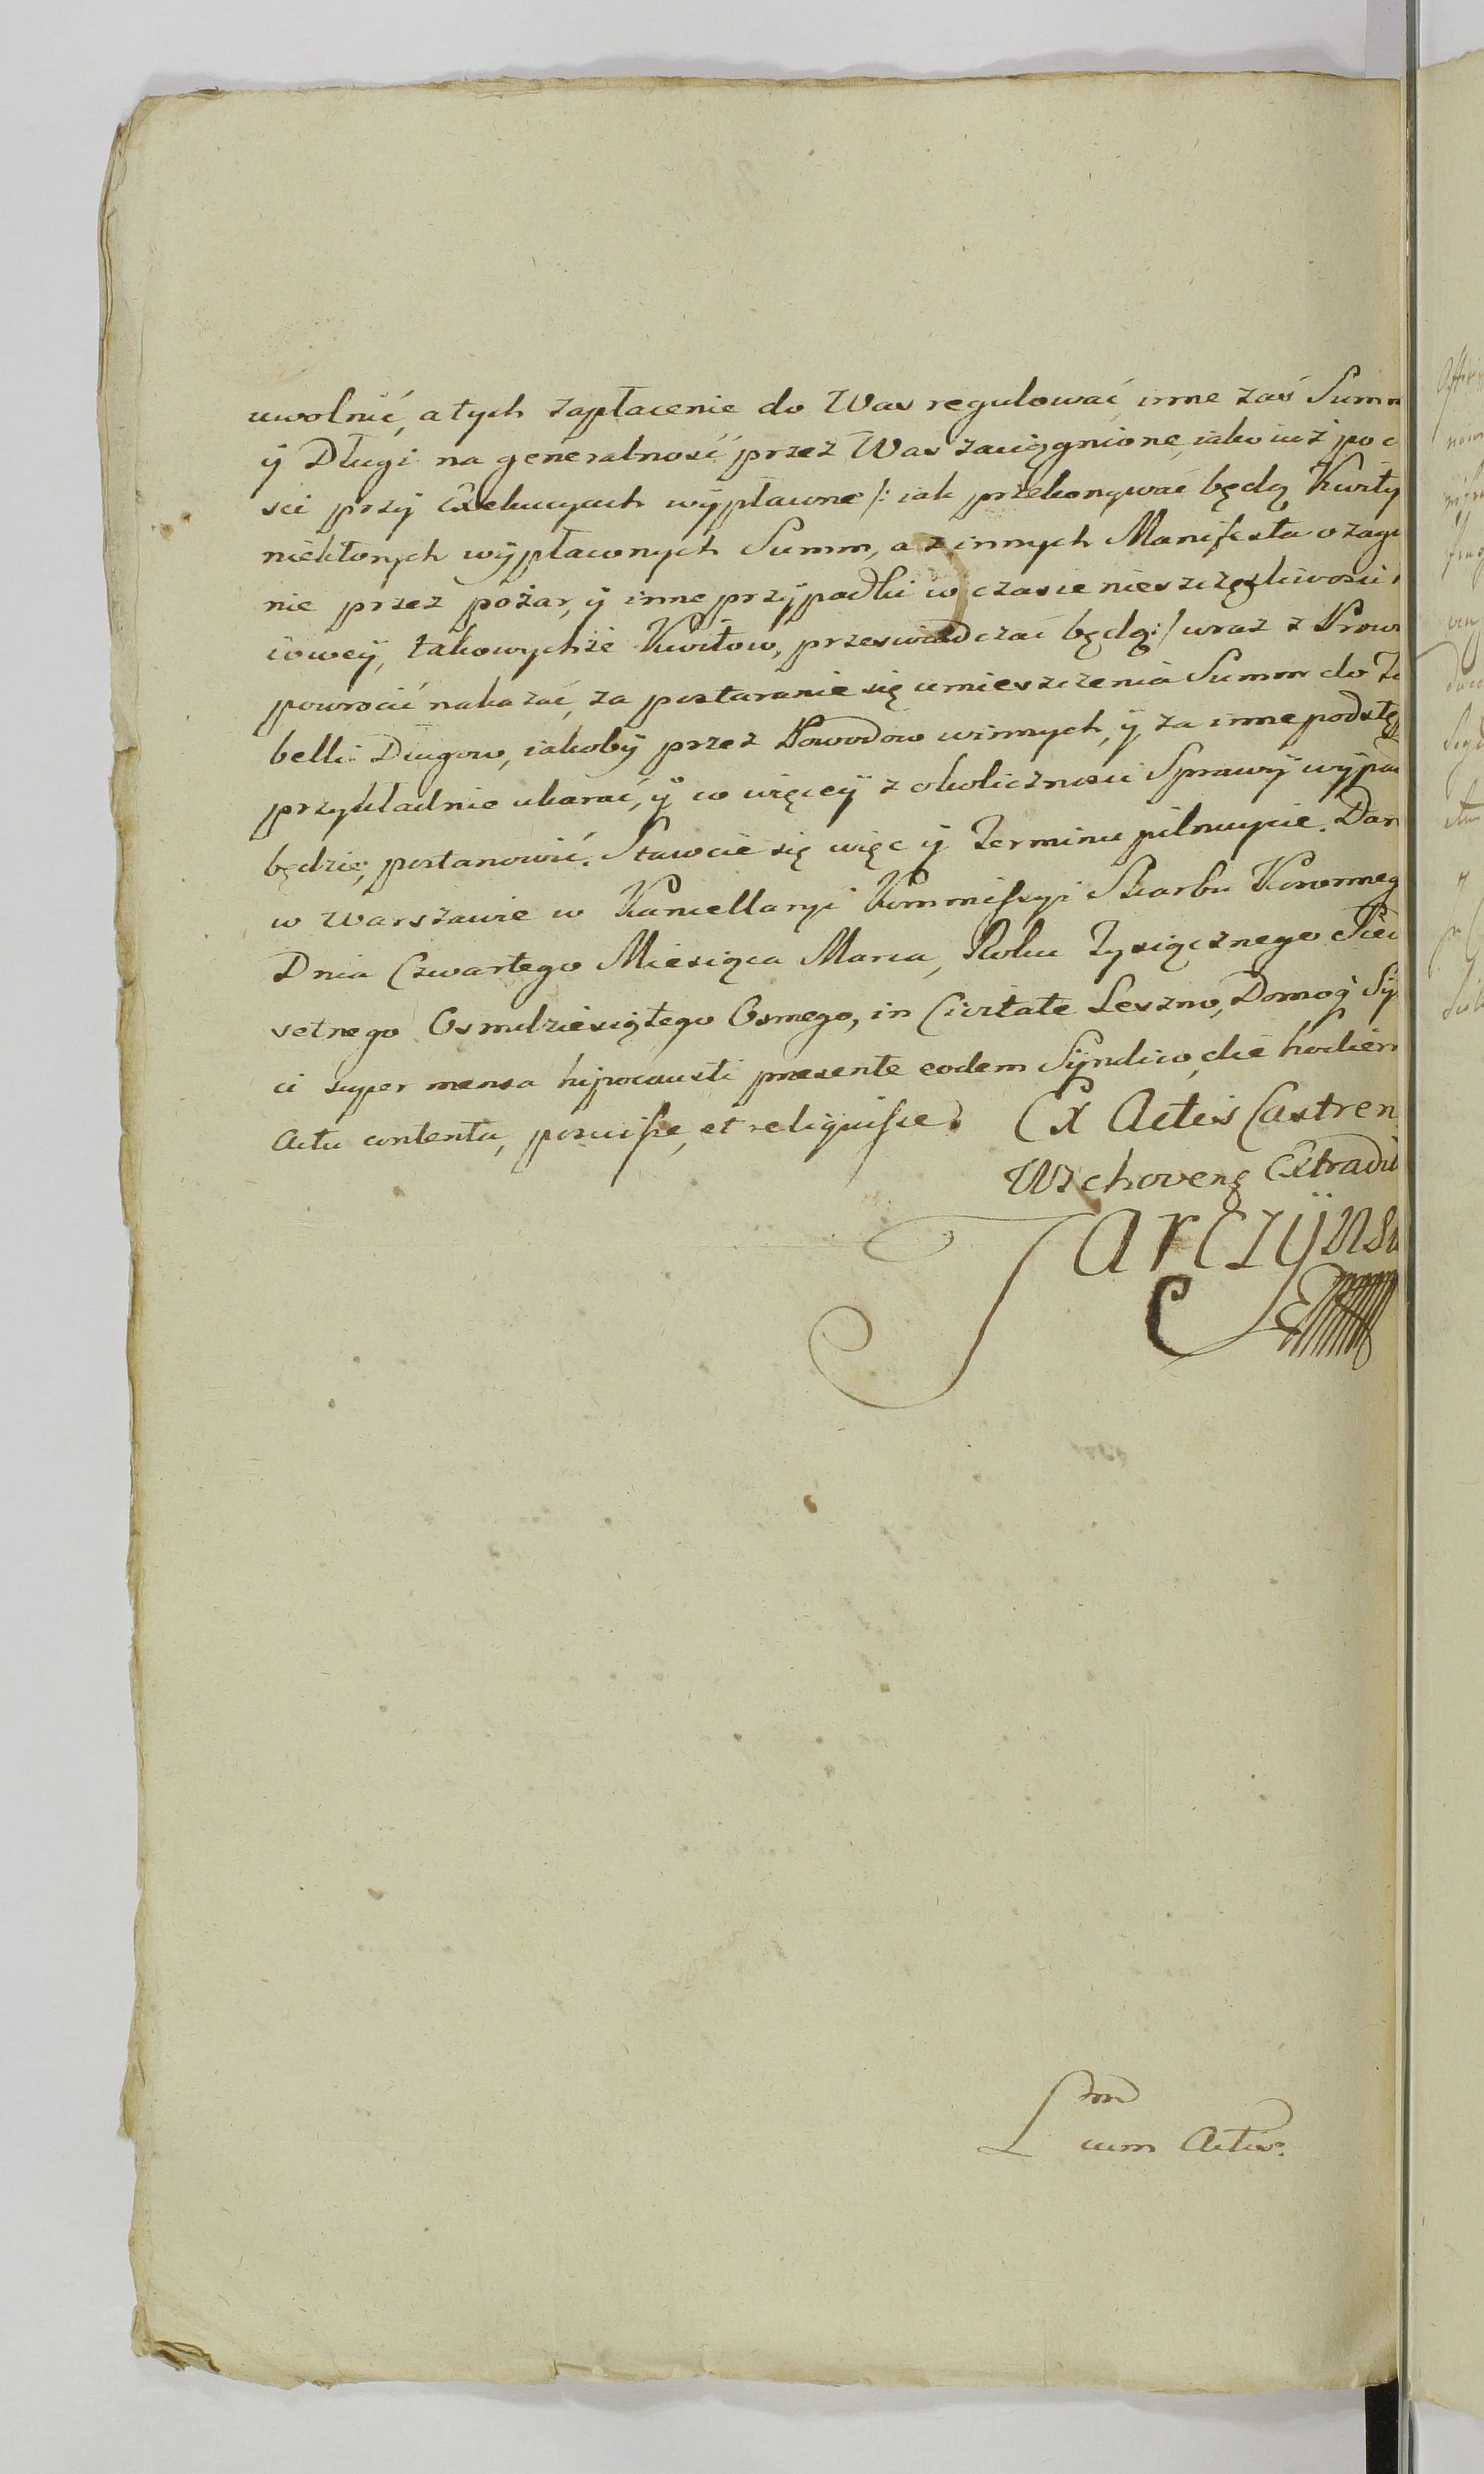 uwolnić, a tych zapłacenie do Was regulować, inne zaś Summ
ÿ Długi na generalność przez Was zaciągnione, iako iuż po c
sci przÿ Exekucyach wÿpłacone /: iak przekonywać będą Kwity
niektorych wÿpłaconych Summ, a z innych Manifesta o zagi
nie przez pożar, ÿ inne przÿpadki w czasie nieszczęsliwosci
iowey, takowychże Kwitow, przeswiadczać będą :/ wraz z Prow
powrocić nakazać, za postaranie się umieszczenia Summ do
belli Długow, iakobÿ przez Powodow winnych, ÿ za inne podstę
przykładnie ukarać, ÿ co więceÿ z okolicznosci Sprawÿ wÿpad
będzie, postanowić. Stawcie się więc ÿ Terminu pilnuycie. Dan
w Warszawie w Kancellaryi Kommissyi Skarbu Koronneg
Dnia Czwartego Miesiąca Marca, Roku Tysiącznego Sied
setnego Osmdziesiątego Osmego, in Civitate Leszno, Domoq̃ Sÿ
ci super mensa hipocausti præsente eodem Sÿndico, die hodiern
Actu contenta, posuisse, et reliquisse. Ex Actis Castren
Wschoveñ Extradit
Tarczÿnsk
Lm
cum Actis.